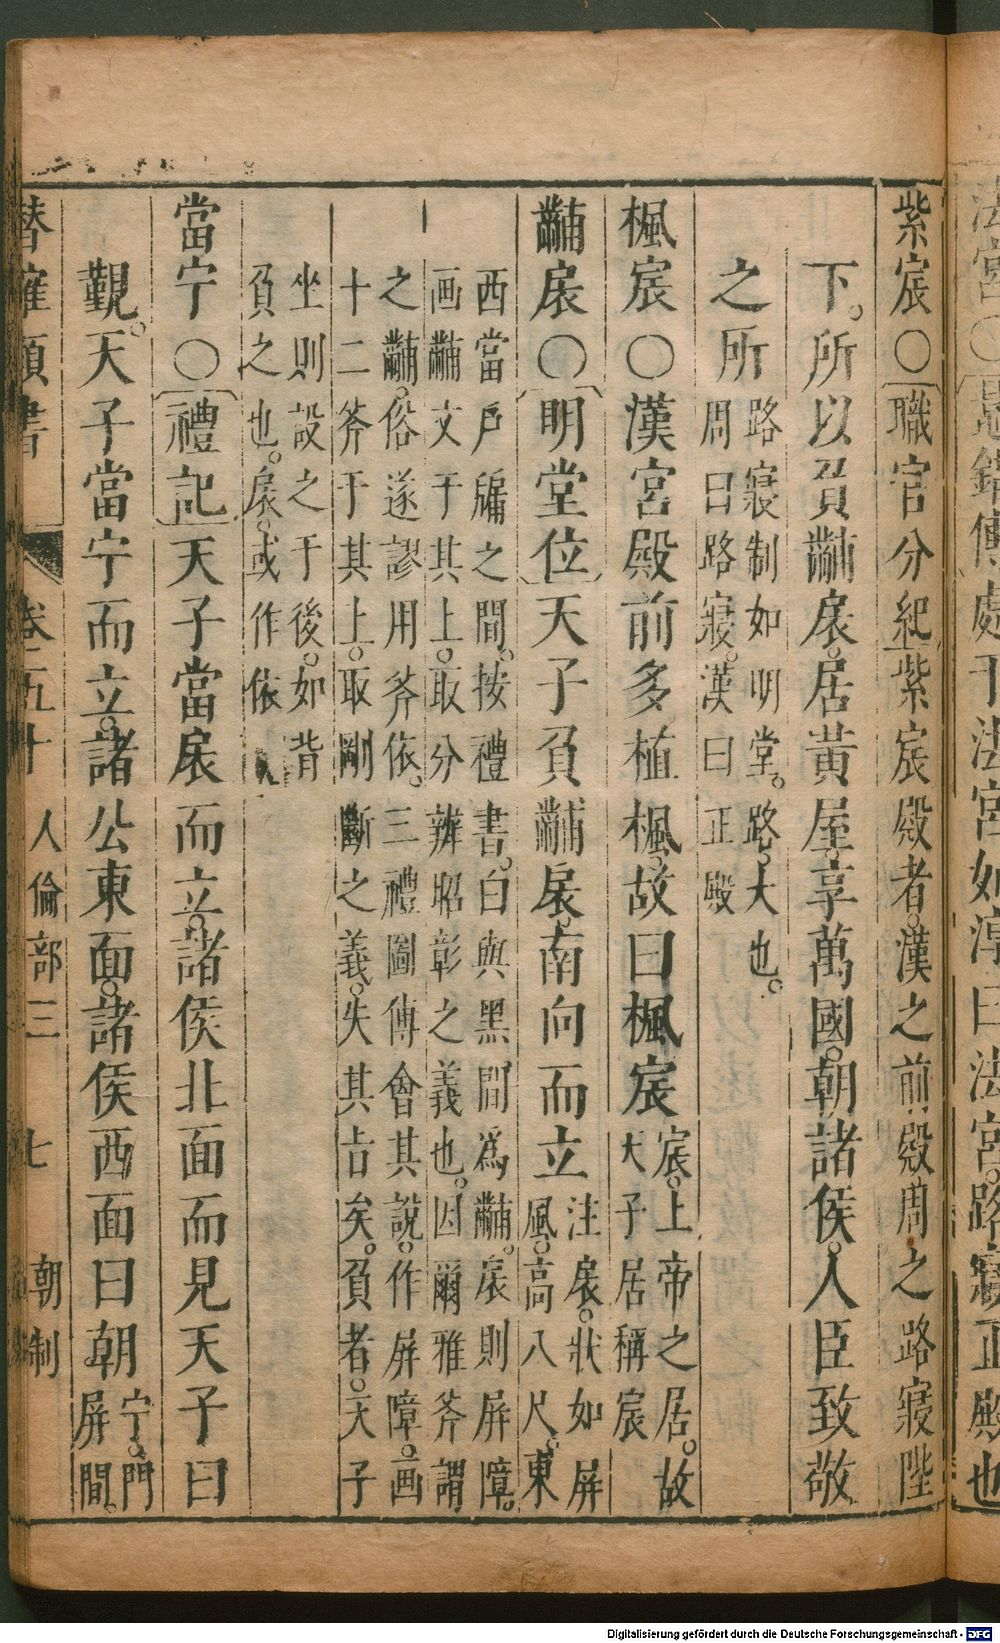 法宮〇晁錯傳處于法宮如淳曰法宮。路寢正殿也
紫宸〇職官分紀紫宸殿者。漢之前殿周之路寢陛
下。所以負黼扆。居黃屋享萬國。朝諸侯。人臣致敬
之所
路寢制如明堂。路。大也。
周曰路寢。漢曰正殿
楓宸〇漢宮殿前多植楓。故曰楓宸
宸。上帝之居。故
天子居稱宸
黼扆〇明堂位天子負黼扆。南向而立
注扆。狀如屏
風。高八尺。東
西當戶牖之間。按禮書。白與黑間爲黼。扆則屏障。
画黼文于其上。取分辨昭彰之義也。因爾雅斧謂
之黼。俗遂謬用斧依。三禮圖傅會其說。作屏障。画
十二斧于其上。取剛斷之義。失其旨矣。負者。天子
坐則設之于後。如背
負之也。扆。或作依
當宁〇禮記天子當扆而立。諸侯北面而見天子曰
覲。天子當宁而立。諸公東面。諸侯西面曰朝
宁。門
屏間。
潛確類書 卷五十 人倫部三 七 朝制
Digitalisierung gefördert durch die Deutsche Forschungsgemeinschaft - DFG